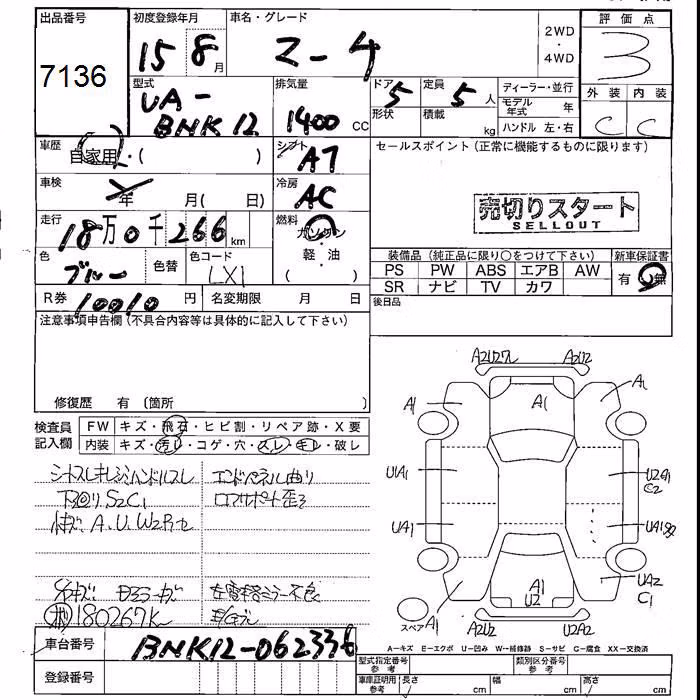 出品番号
7136
初度登録年月
15 8月
車名・グレード
マーチ
2WD
・
4WD
評価点
3
外装 内装
C C
型式
UA-
BNK12
排気量
1400 CC
ドア 5
形状
定員 5人
積載 kg
ディーラー・並行
モデル年式 年
ハンドル 左・右
車歴
自家用・( )
シフト
AT
セールスポイント(正常に機能するものに限ります)
売切りスタート
SELLOUT
車検
年 月( 日)
冷房
AC
走行
18万0千266km
燃料
ガソリン
軽・油
( )
色
ブルー
色替
色コード
LX1
装備品(純正品に限り○をつけて下さい)
新車保証書
PS PW ABS エアB AW
有 無
SR ナビ TV カワ
後日品
R券 10010円
名変期限 月 日
注意事項申告欄(不具合内容等は具体的に記入して下さい)
修復歴 有(箇所 )
検査員
記入欄
FW キズ・飛石・ヒビ割・リペア跡・X要
内装 キズ・汚レ・コゲ・穴・スレ・キレ・破レ
シートスレキレ
ハンドルスレ
エンドパネル曲り
下回り S2C1
A.U.W2
180267K
車台番号
BNK12-062336
登録番号
A2U2 A2U2
A1 A1 A1
U1A1 C2
UA1
A1 U2
UA2 C1
スペア
A1
A2U2 U2A2
A-キズ E-エクボ U-凹み W-補修跡 S-サビ C-腐食 XX-交換済
型式指定番号 参考
類別区分番号 参考
車庫証明用 参考
長さ cm
幅 cm
高さ cm